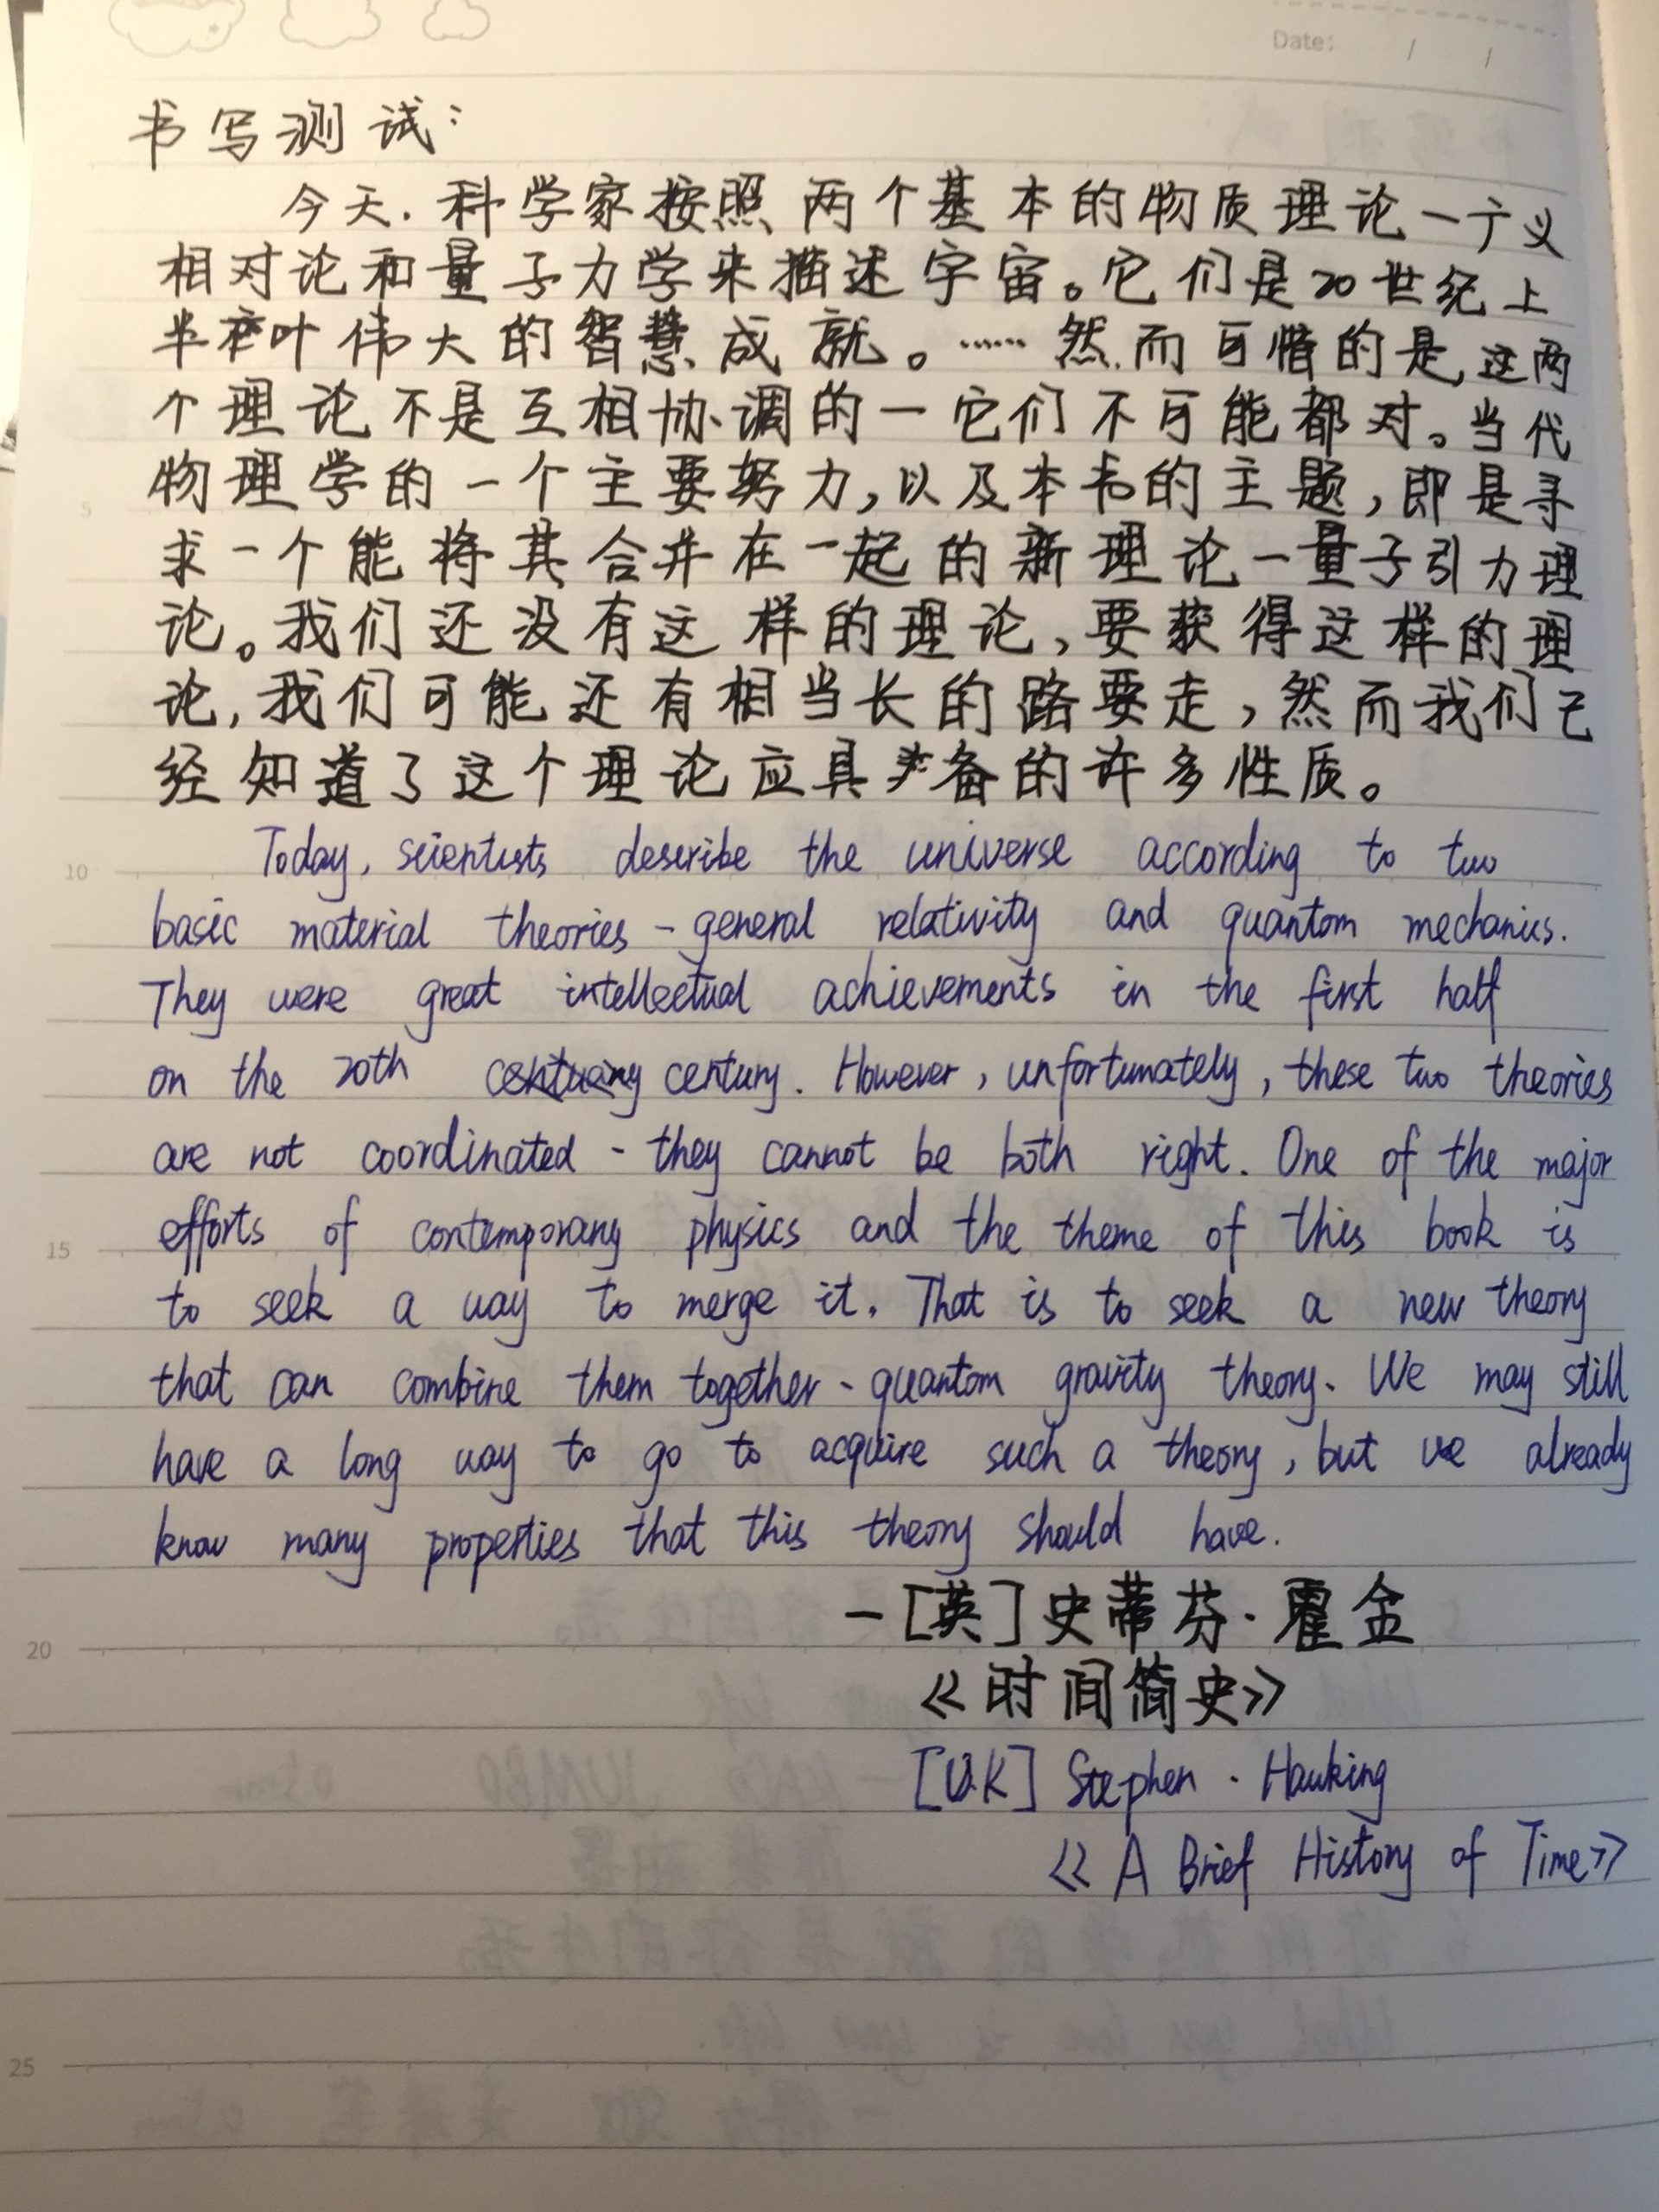 Date: / /
书写测试：
今天，科学家按照两个基本的物质理论—广义
相对论和量子力学来描述宇宙。它们是20世纪上
半叶伟大的智慧成就。……然而可惜的是，这两
个理论不是互相协调的—它们不可能都对。当代
物理学的一个主要努力，以及本书的主题，即是寻
求一个能将其合并在一起的新理论—量子引力理
论。我们还没有这样的理论，要获得这样的理
论，我们可能还有相当长的路要走，然而我们已
经知道了这个理论应具备的许多性质。
Today, scientists describe the universe according to two
basic material theories - general relativity and quantom mechanics.
They were great intellectual achievements in the first half
on the 20th century. However, unfortunately, these two theories
are not coordinated - they cannot be both right. One of the major
efforts of contemporary physics and the theme of this book is
to seek a way to merge it. That is to seek a new theory
that can combine them together - quantom gravity theory. We may still
have a long way to go to acquire such a theory, but we already
know many properties that this theory should have.
—[英]史蒂芬·霍金
《时间简史》
[U.K] Stephen · Hawking
《A Brief History of Time》
5
10
15
20
25